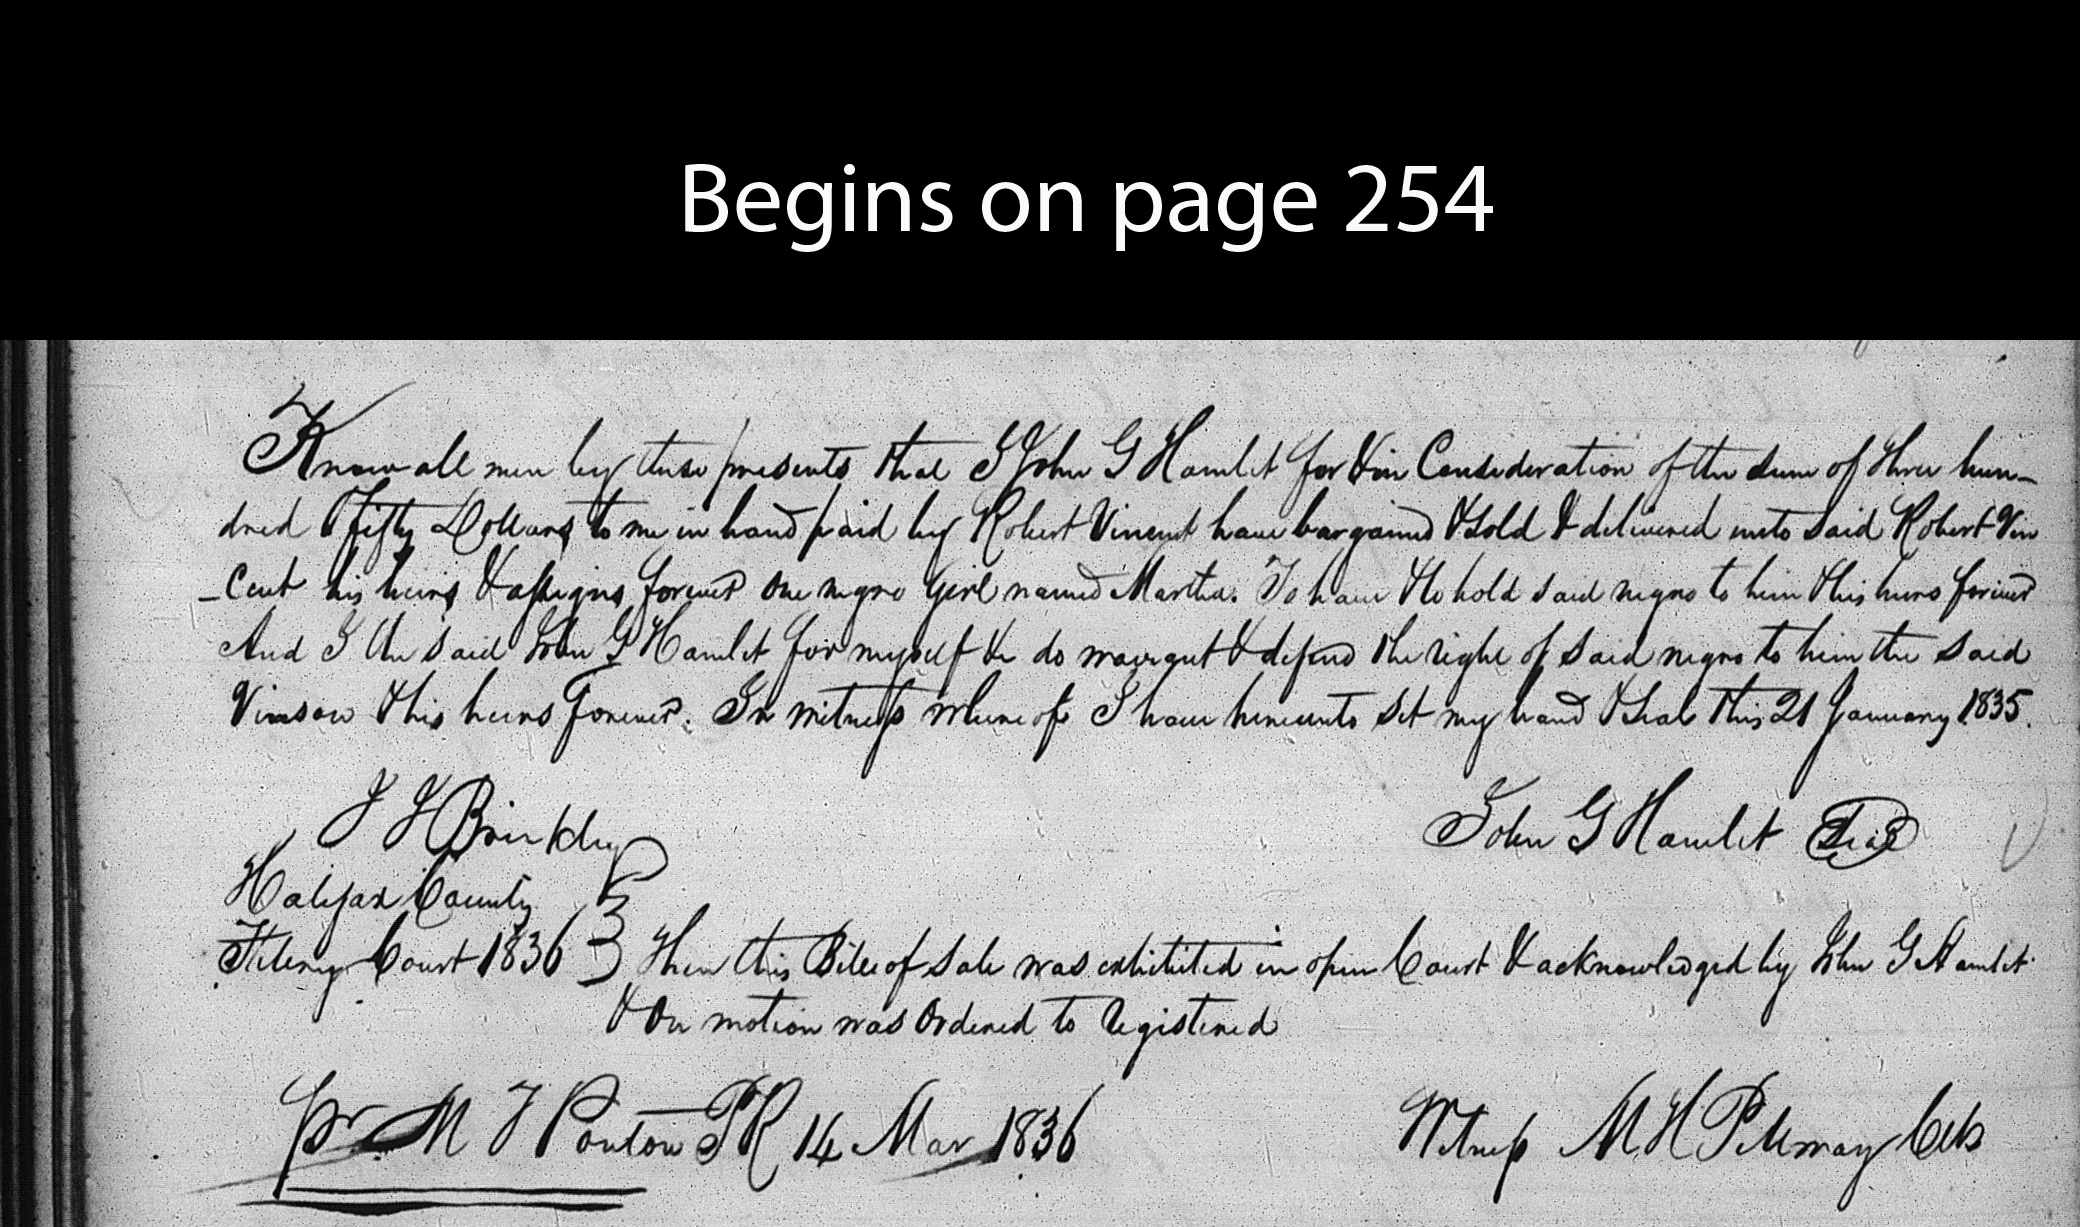 Begins on page 254
Know all men by these presents that I John G Hamlet for & in Consideration of the sum of three hun-
dred & fifty Dollars to me in hand paid by Robert Vincent have bargained & sold & delivered unto said Robert Vin
-cent his heirs & assigns forever one negro Girl named Martha. To have & to hold said negro to him & his heirs forever
And I the said John G Hamlet for myself &c do warrant & defend the right of said negro to him the said
& his heirs forever. In witness whereof I have hereunto set my hand & seal this 21 January 1835.
J J Brinkley
John G Hamlet Seal
Halifax County
Feberry Court 1836 } Then this Bill of sale was exhibited in open Court & acknowledged by John G Hamlet
& On motion was Ordered to registered
pr M T Ponton PR 14 Mar 1836
Witness M H Pettway Clk